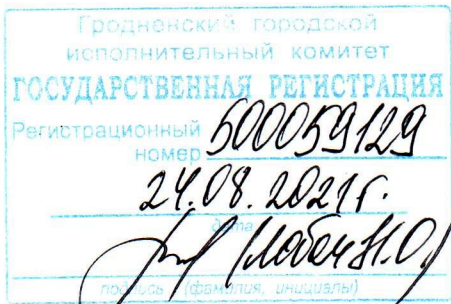 Гродненский городской
исполнительный комитет
ГОСУДАРСТВЕННАЯ РЕГИСТРАЦИЯ
Регистрационный
номер 500059129
24.08.2021г.
дата
подпись (фамилия, инициалы)